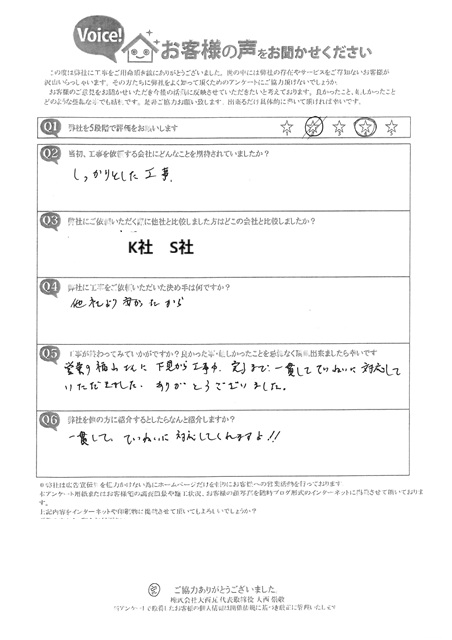 Voice!
お客様の声をお聞かせください
この度は弊社に工事をご用命頂き誠にありがとうございました。世の中には弊社の存在やサービスをご存知ないお客様が
沢山いらっしゃいます。その方たちに弊社をよく知って頂くためのアンケートにご協力頂けないでしょうか。
お客様のご意見をお聞かせいただき今後の活動に反映させていただきたいと考えております。良かったこと、悲しかったこと
どのような些細な事でも結構です。是非ご協力お願い致します。出来るだけ具体的に書いて頂ければ幸いです。
Q1 弊社を5段階で評価をお願いします ☆ ☆ ☆ ☆ ☆
Q2 当初、工事を依頼する会社にどんなことを期待されていましたか？
しっかりとした工事、
Q3 弊社にご依頼いただく際に他社と比較しました方はどこの会社と比較しましたか？
K社 S社
Q4 弊社に工事をご依頼いただいた決め手は何ですか？
他社より安かったから
Q5 工事が終わってみていかがですか？良かった事・悲しかったことを忌憚なく頂戴出来ましたら幸いです
営業の福山さんに下見から工事の完了まで、一貫してていねいに対応して
いただきました。ありがとうございました。
Q6 弊社を他の方に紹介するとしたらなんと紹介しますか？
一貫して、ていねいに対応してくれますよ!!
※弊社は広告宣伝費を極力かけない為にホームページだけを利用にお客様への営業活動を行っております
※アンケート用紙またはお客様宅の満面工事や施工状況、お客様の顔写真を随時ブログ形式のインターネットに掲載させて頂いておりま
す。
上記内容をインターネットや印刷物に掲載させて頂いてもよろしいでしょうか？
ご協力ありがとうございました
株式会社大西瓦 代表取締役 大西